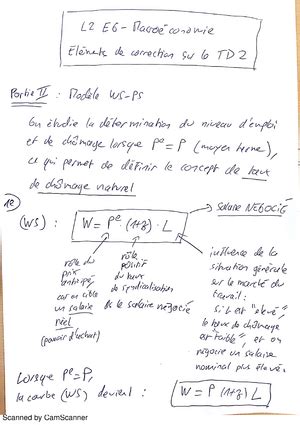 L2 EG - Macroéconomie
Eléments de correction sur le TD2
Partie II : Modèle WS-PS
On étudie la détermination du niveau d'emploi
et de chômage lorsque Pe = P (moyen terme),
ce qui permet de définir le concept de taux
de chômage naturel
1e
SALAIRE NÉGOCIÉ
(WS) : W = Pe · (1+z) · L
rôle du
prix
anticipé
car on cible
un salaire
réel
(pouvoir d'achat)
rôle
positif
du taux
de syndicalisation
le salaire négocié
influence de la
situation générale
sur le marché du
travail :
si L est "élevé",
le taux de chômage
est "faible", et on
négocie un salaire
nominal plus élevé.
Lorsque Pe = P,
la courbe (WS) devient : W = P (1+z) L
Scanned by CamScanner